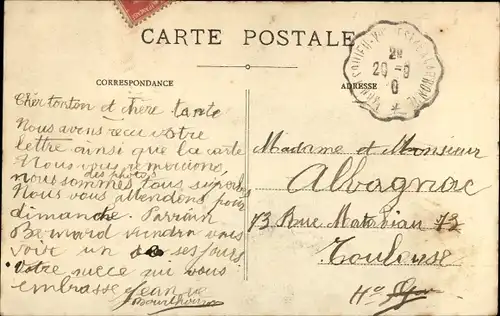 CARTE POSTALE
CORRESPONDANCE
ADRESSE
2E
20-9
0
Cher tonton et chère tante
Nous avons reçu votre
lettre ainsi que la carte
Nous vous remercions
des photos
nous sommes tous superbes
Nous vous attendons pour
dimanche. Parrain
Bernard viendra vous
voir un de ses jours
Votre nièce qui vous
embrasse Jeanne
Madame et Monsieur
Albagnac
73 Rue Matabiau 73
Toulouse
Hte Gne